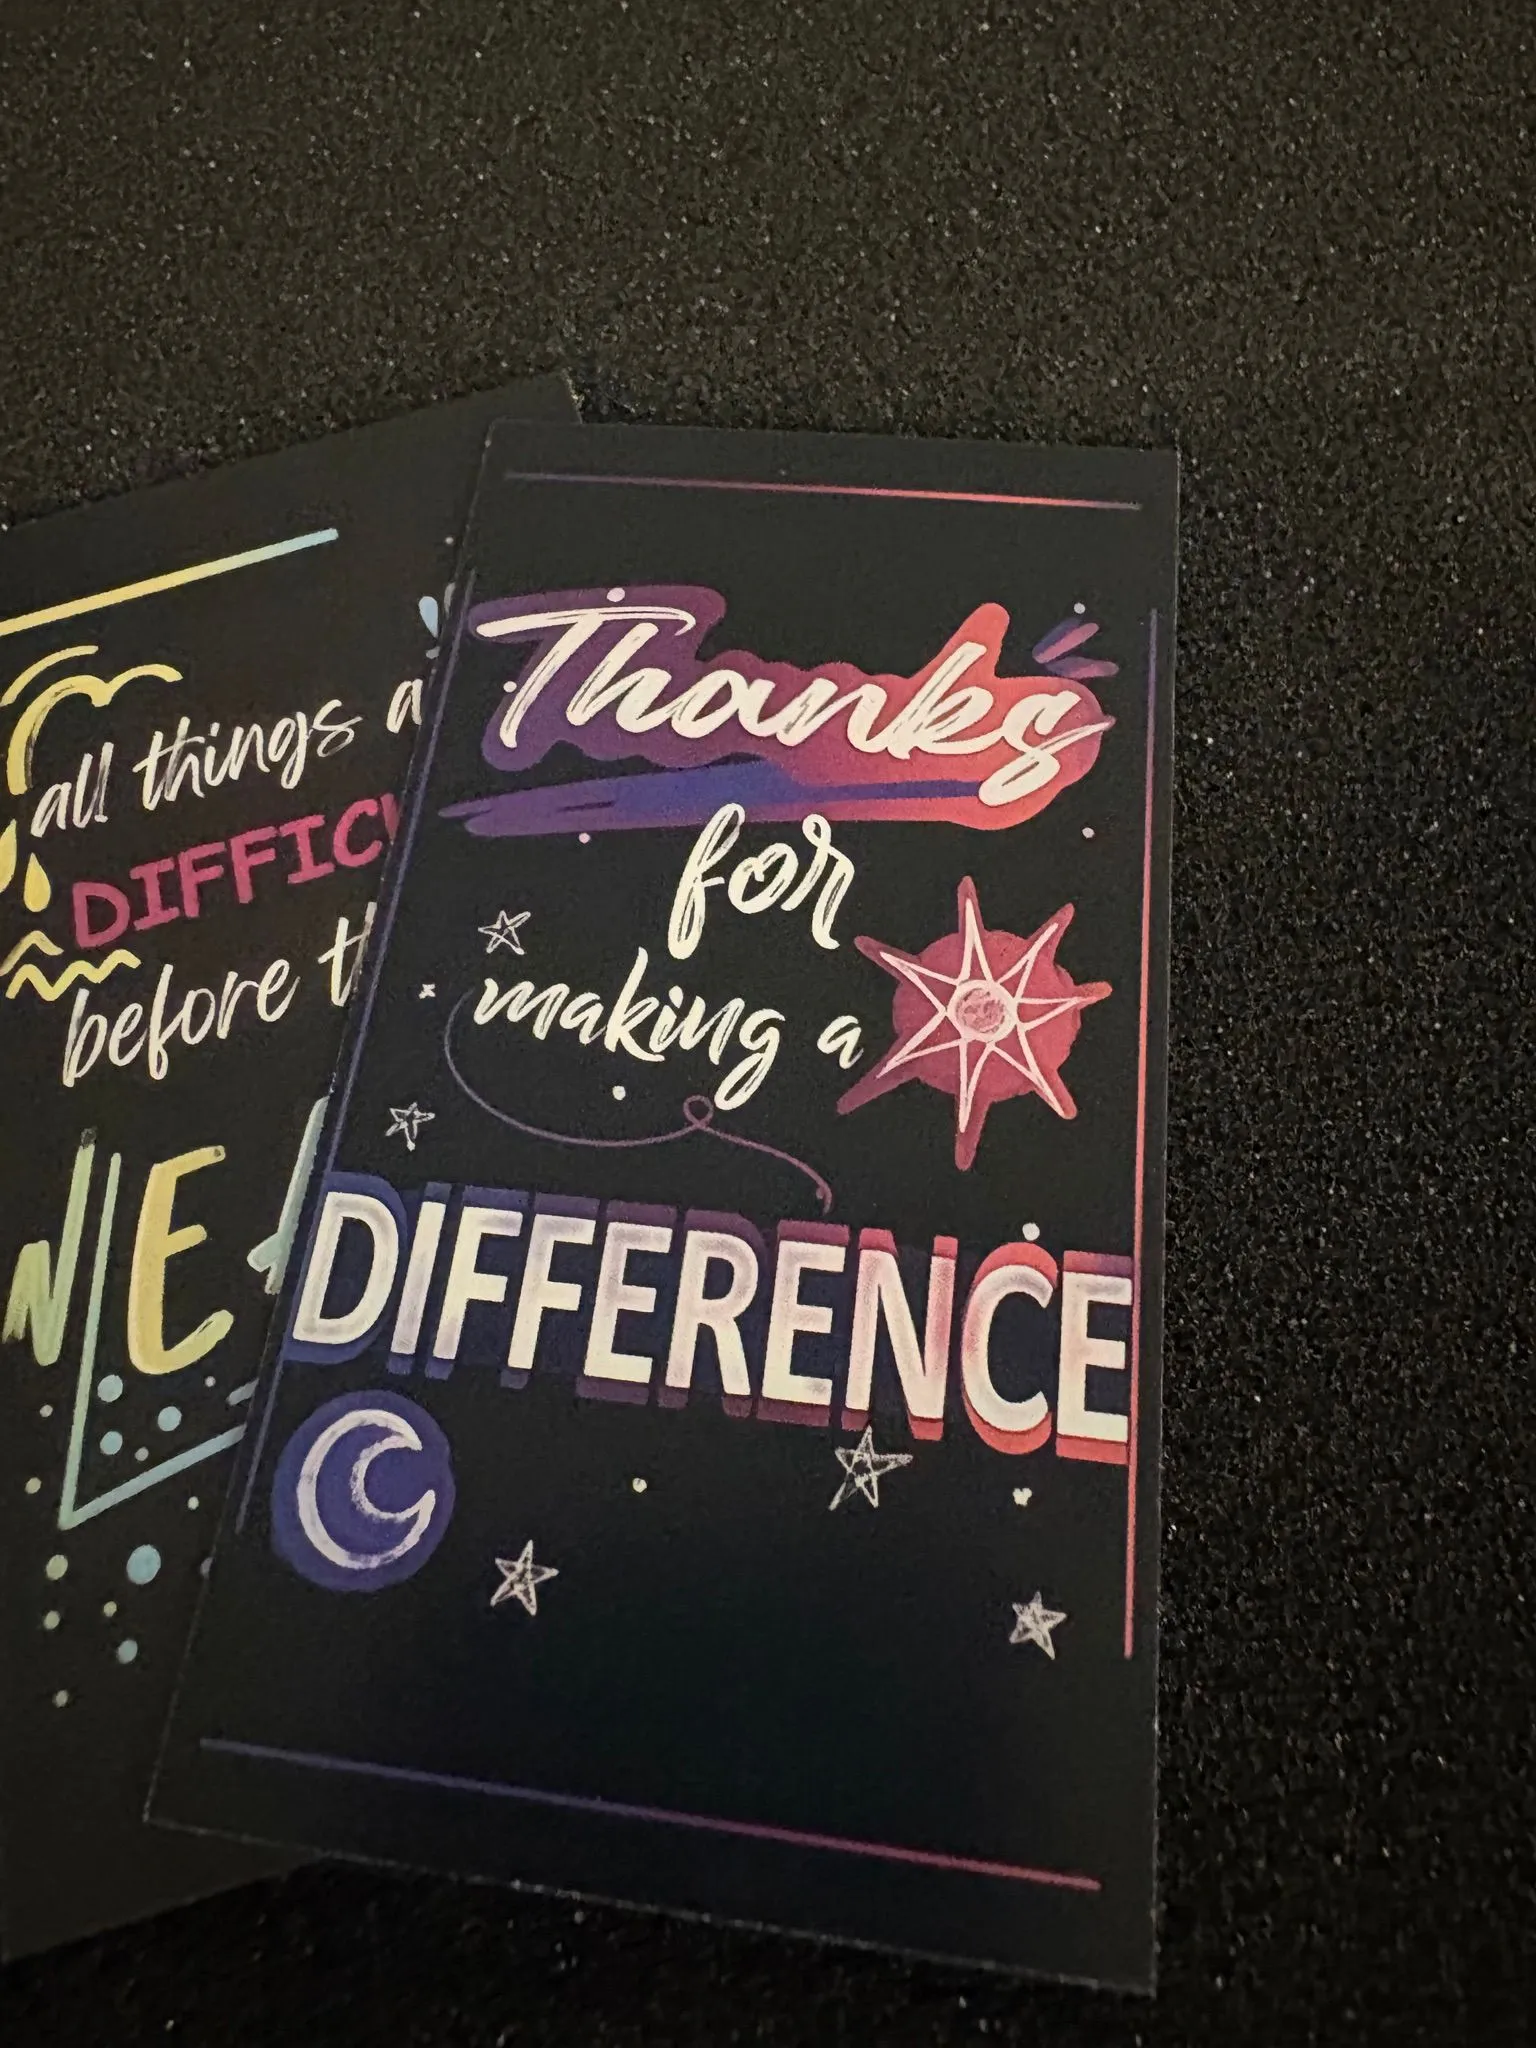 all things a
DIFFIC
before t
N E A
Thanks
for
making a
DIFFERENCE